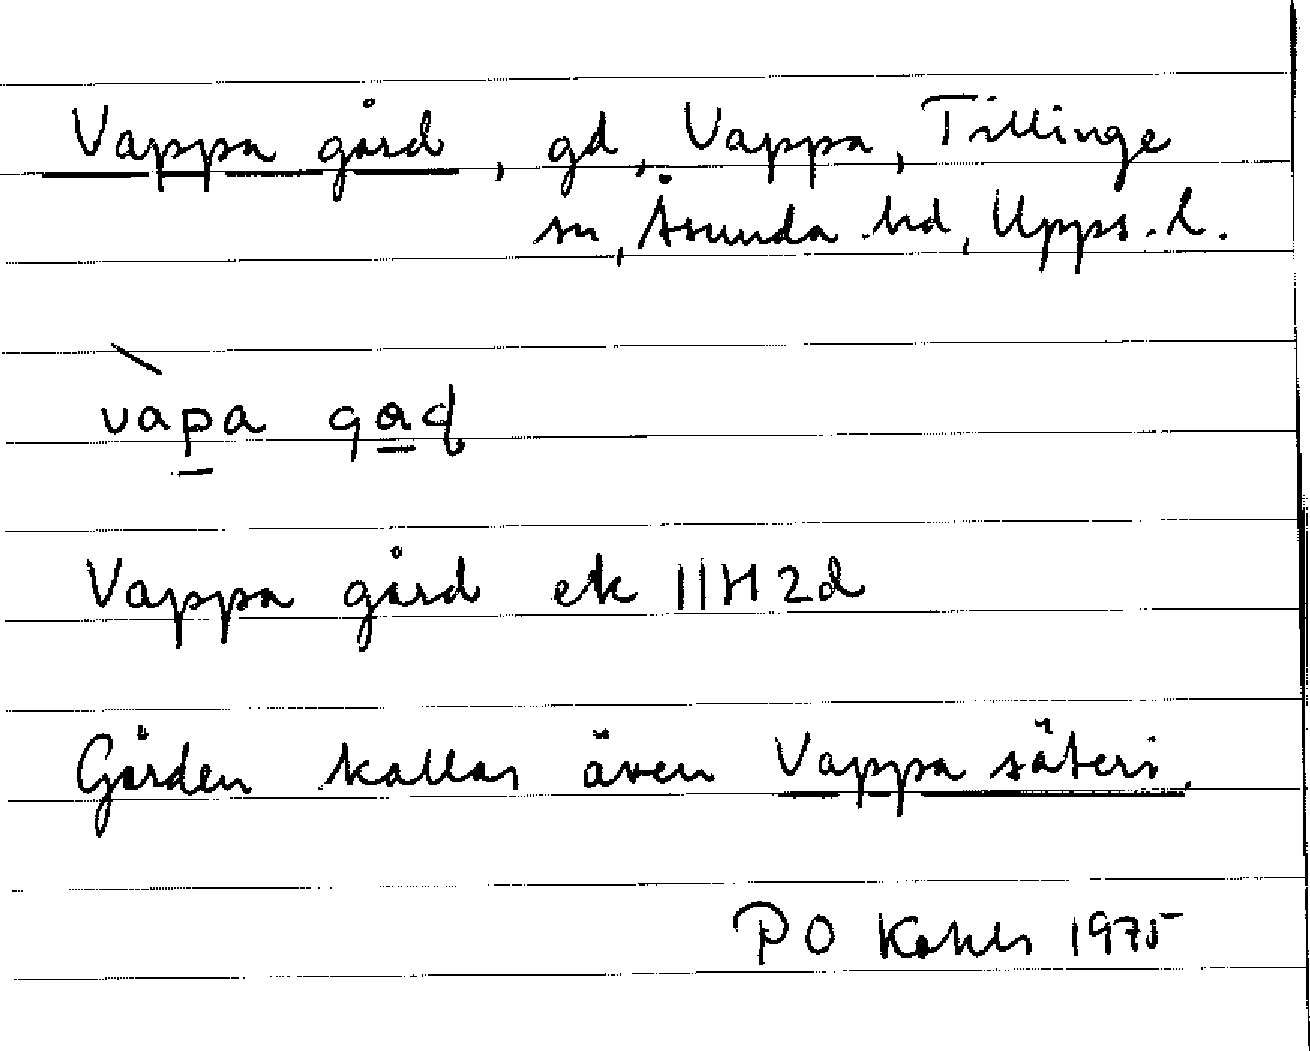 Vappa gård, gd, Vappa, Tillinge
sn, Åsunda hd, Upps. l.
Vappa gård ek 11H2d
Gården kallas även Vappa säteri.
PO 1975